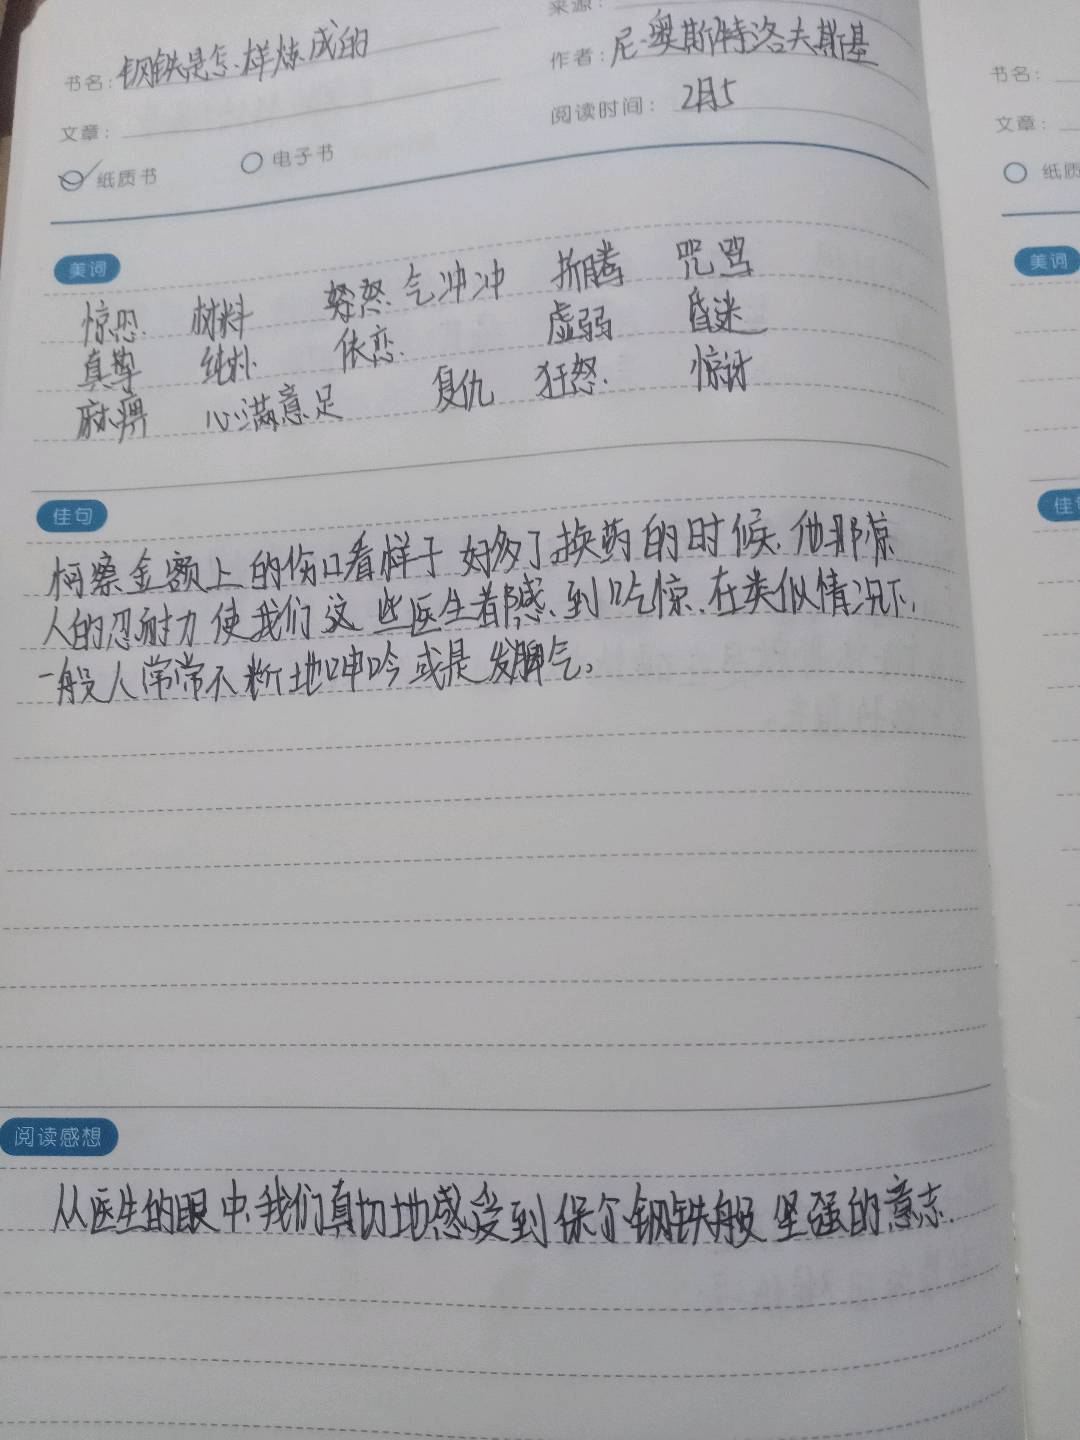 来源：
书名：钢铁是怎样炼成的
作者：尼·奥斯特洛夫斯基
文章：
阅读时间：2月5
纸质书 电子书
美词
惊恐 材料 怒 气冲冲 折腾 咒骂
真挚 纯朴 依恋 虚弱 昏迷
麻痹 心满意足 复仇 狂怒 惊讶
佳句
柯察金额上的伤口看样子好多了换药的时候,他那惊
人的忍耐力使我们这些医生都感到吃惊,在类似情况下,
一般人常常不断地呻吟或是发脾气。
阅读感想
从医生的眼中,我们真切地感受到保尔钢铁般坚强的意志.
书名：
文章：
纸质
美词
佳句